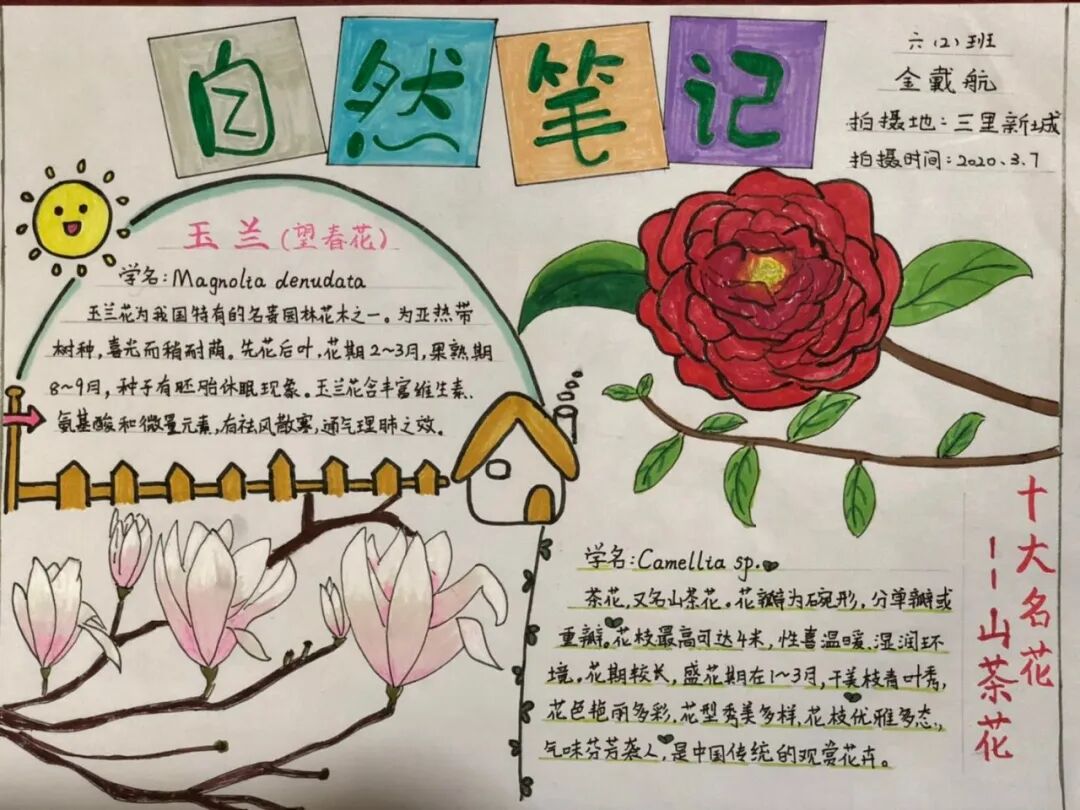 自然笔记
六(2)班
金戴航
拍摄地:三里新城
拍摄时间:2020.3.7
玉兰(望春花)
学名:Magnolia denudata
玉兰花为我国特有的名贵园林花木之一。为亚热带
树种,喜光而稍耐荫。先花后叶,花期2~3月,果熟期
8~9月,种子有胚胎休眠现象。玉兰花含丰富维生素、
氨基酸和微量元素,有祛风散寒,通气理肺之效。
十大名花
--山茶花
学名:Camellia sp.
茶花,又名山茶花。花瓣为碗形,分单瓣或
重瓣。花枝最高可达4米,性喜温暖、湿润环
境。花期较长,盛花期在1~3月,干美枝青叶秀,
花色艳丽多彩,花型秀美多样,花枝优雅多态,
气味芬芳袭人,是中国传统的观赏花卉。